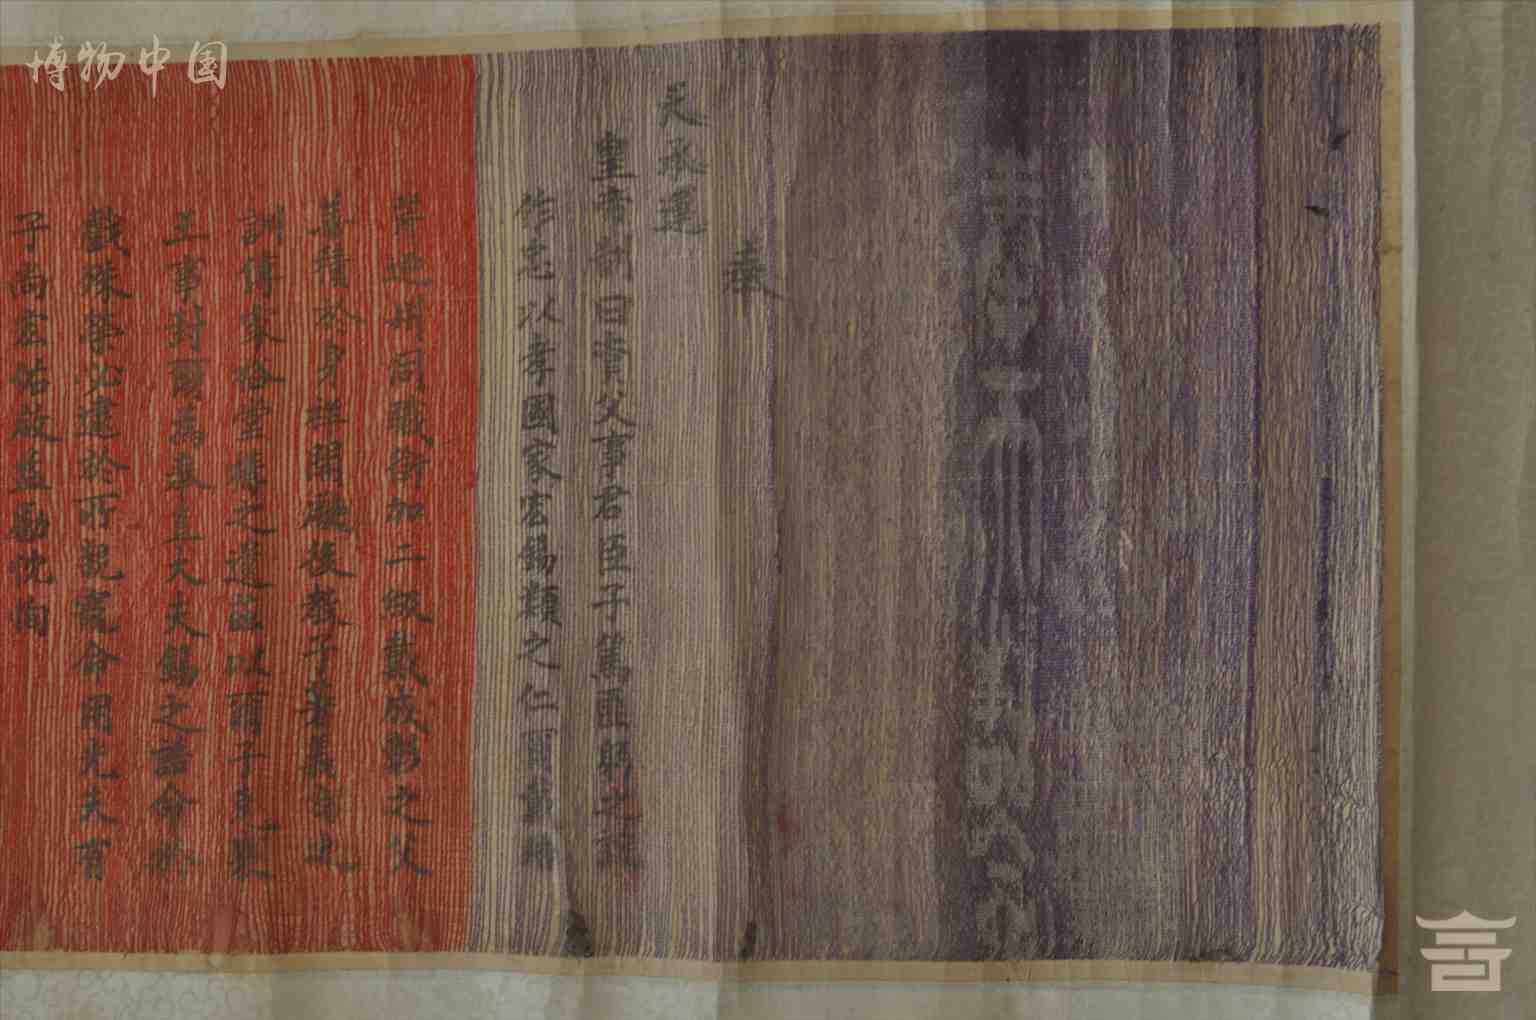 博物中国
奉天誥命
奉
天承運
皇帝制曰資父事君臣子篤匪躬之誼
作忠以孝國家宏錫類之仁爾戴
迪州同職銜加二級戴成彰之父
善積於身祥開厥後教子著義方之
訓傳家裕堂構之遺茲以爾子克襄
王事封爾為奉直大夫錫之誥命於
戲殊榮必逮於所親寵命用光夫有
子尚宏佑啟益勵忱恂